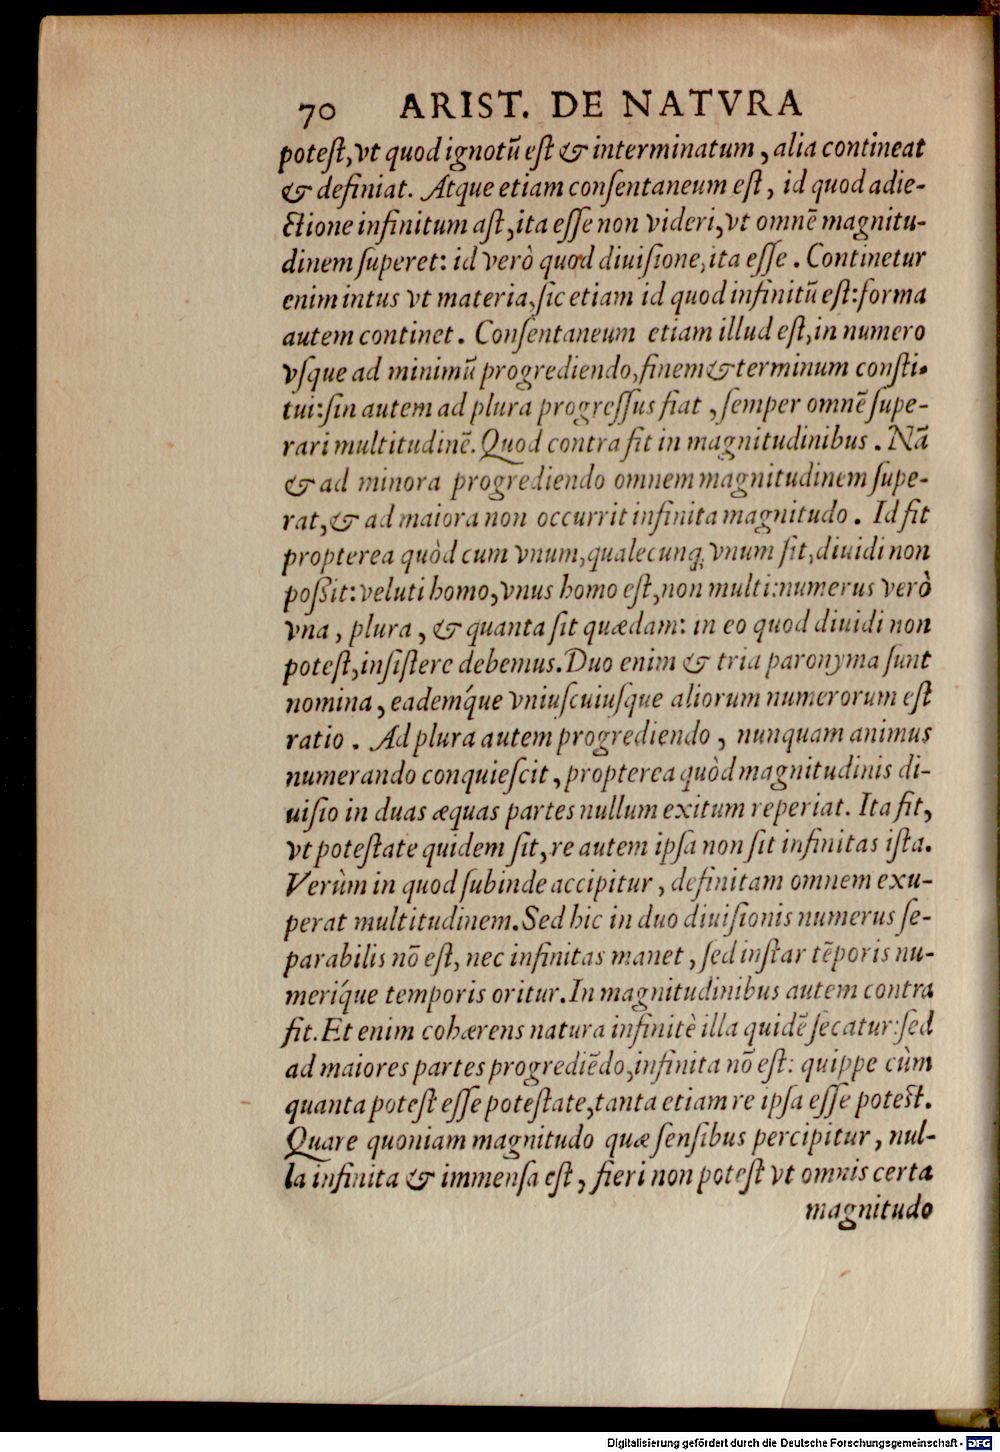 70 ARIST. DE NATVRA
potest, vt quod ignotũ est & interminatum, alia contineat
& definiat. Atque etiam consentaneum est, id quod adie-
ctione infinitum ast, ita esse non videri, vt omnẽ magnitu-
dinem superet: id verò quod diuisione, ita esse. Continetur
enim intus vt materia, sic etiam id quod infinitũ est: forma
autem continet. Consentaneum etiam illud est, in numero
vsque ad minimũ progrediendo, finem & terminum consti-
tui: sin autem ad plura progressus fiat, semper omnẽ supe-
rari multitudinẽ. Quod contra fit in magnitudinibus. Nã
& ad minora progrediendo omnem magnitudinem supe-
rat, & ad maiora non occurrit infinita magnitudo. Id fit
propterea quòd cum vnum, qualecunq; vnum sit, diuidi non
possit: veluti homo, vnus homo est, non multi: numerus verò
vna, plura, & quanta sit quædam: in eo quod diuidi non
potest, insistere debemus. Duo enim & tria paronyma sunt
nomina, eadem´que vniuscuiusque aliorum numerorum est
ratio. Ad plura autem progrediendo, nunquam animus
numerando conquiescit, propterea quòd magnitudinis di-
uisio in duas æquas partes nullum exitum reperiat. Ita fit,
vt potestate quidem sit, re autem ipsa non sit infinitas ista.
Verùm in quod subinde accipitur, definitam omnem exu-
perat multitudinem. Sed hic in duo diuisionis numerus se-
parabilis nõ est, nec infinitas manet, sed instar tẽporis nu-
meri´que temporis oritur. In magnitudinibus autem contra
fit. Et enim cohærens natura infinitè illa quidẽ secatur: sed
ad maiores partes progrediẽdo, infinita nõ est: quippe cùm
quanta potest esse potestate, tanta etiam re ipsa esse potest.
Quare quoniam magnitudo quæ sensibus percipitur, nul-
la infinita & immensa est, fieri non potest vt omnis certa
magnitudo
Digitalisierung gefördert durch die Deutsche Forschungsgemeinschaft - DFG